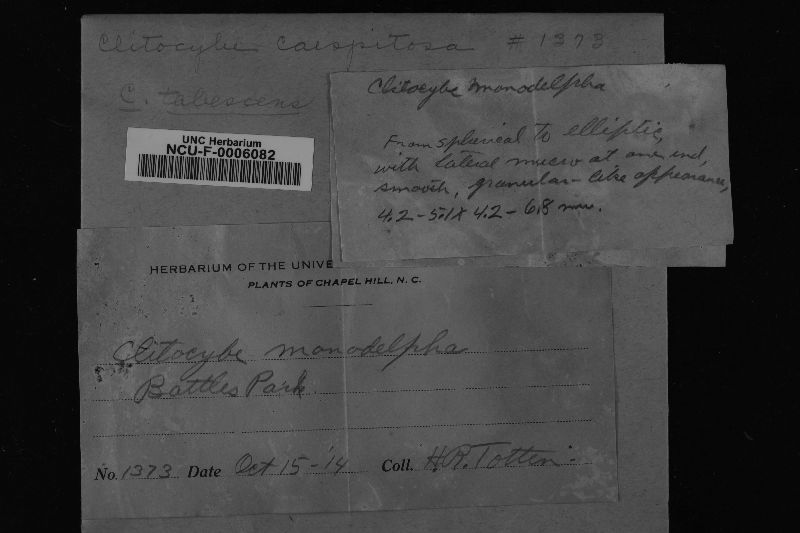 Clitocybe caespitosa # 1373
C. tabescens
UNC Herbarium
NCU-F-0006082
Clitocybe monodelpha
From spherical to elliptic,
with lateral mucro at one end,
smooth, granular-like appearance,
4.2-5.1 x 4.2-6.8 mm.
HERBARIUM OF THE UNIVE
PLANTS OF CHAPEL HILL, N. C.
Clitocybe monodelpha
Battles Park.
No. 1373 Date Oct 15-'14 Coll. H.R. Totten.